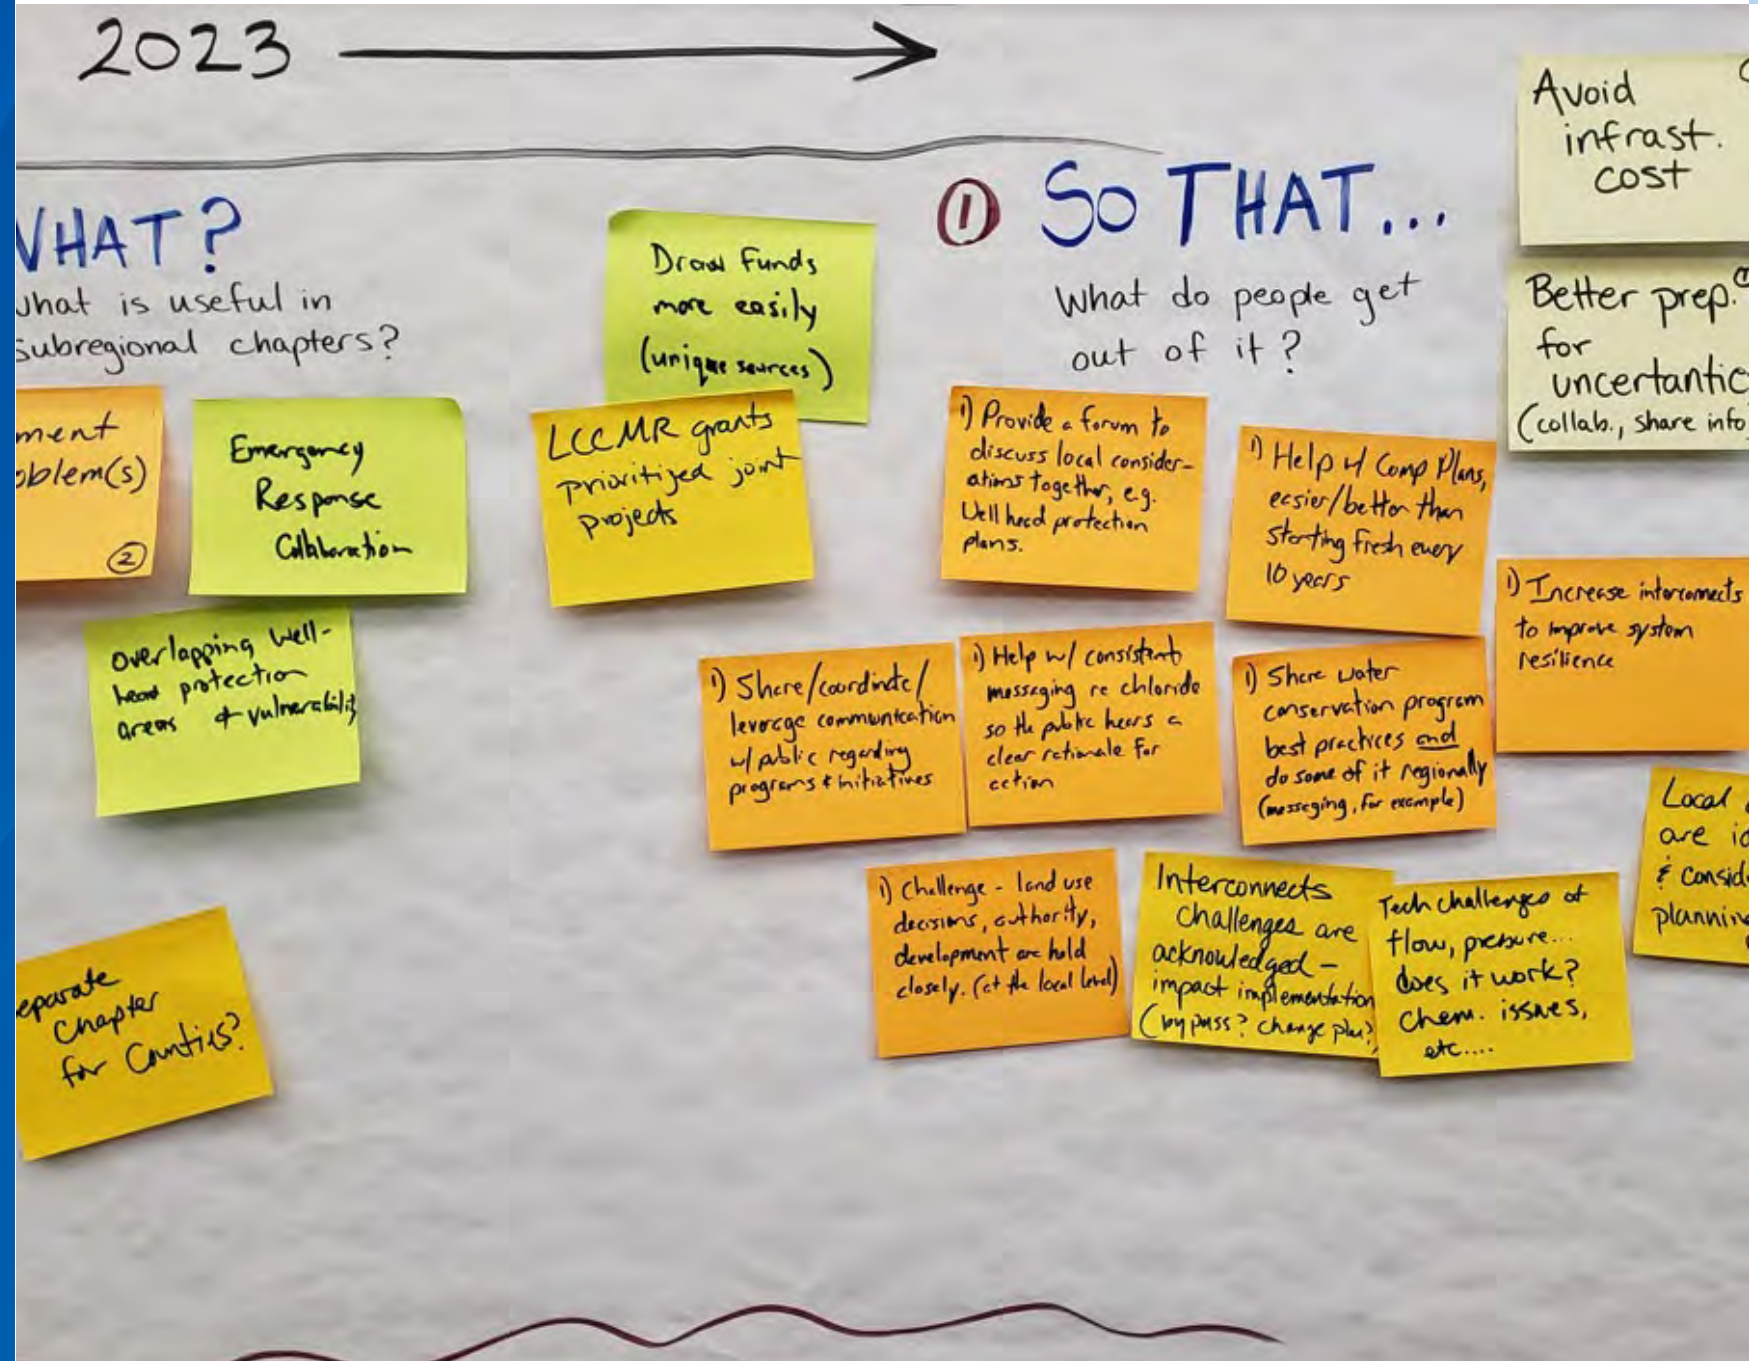 2023
WHAT?
what is useful in
subregional chapters?
ment
oblem(s)
2
Emergency
Response
Collaboration
overlapping well-
head protection
areas & vulnerability
eparate
Chapter
for Counties?
Draw funds
more easily
(unique sources)
LCCMR grants
prioritized joint
projects
1 SO THAT...
What do people get
out of it?
1) Provide a forum to
discuss local consider-
ations together, e.g.
Well head protection
plans.
1) Help w/ Comp Plans,
easier/better than
starting fresh every
10 years
1) Increase interconnects
to improve system
resilience
1) Share/coordinate/
leverage communication
w/ public regarding
programs & initiatives
1) Help w/ consistent
messaging re chloride
so the public hears a
clear rationale for
action
1) Share water
conservation program
best practices and
do some of it regionally
(messaging, for example)
1) Challenge - land use
decisions, authority,
development are held
closely. (at the local level)
Interconnects
challenges are
acknowledged -
impact implementation
(bypass? change plan?)
Tech challenges of
flow, pressure...
does it work?
Chem. issues,
etc....
Avoid
infrast.
cost
Better prep.
for
uncertantie
(collab., share info
Local
are
& consid
planning